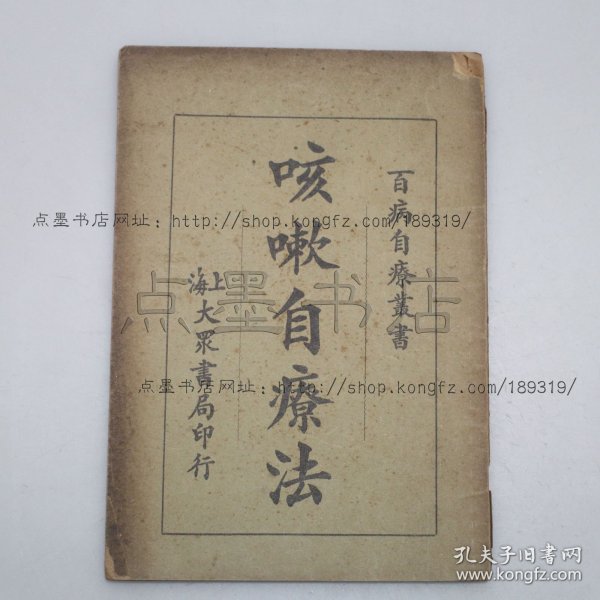 百病自療叢書
咳嗽自療法
上海大眾書局印行
点墨书店网址：http://shop.kongfz.com/189319/
点墨书店
点墨书店网址：http://shop.kongfz.com/189319/
孔夫子旧书网
www.kongfz.com